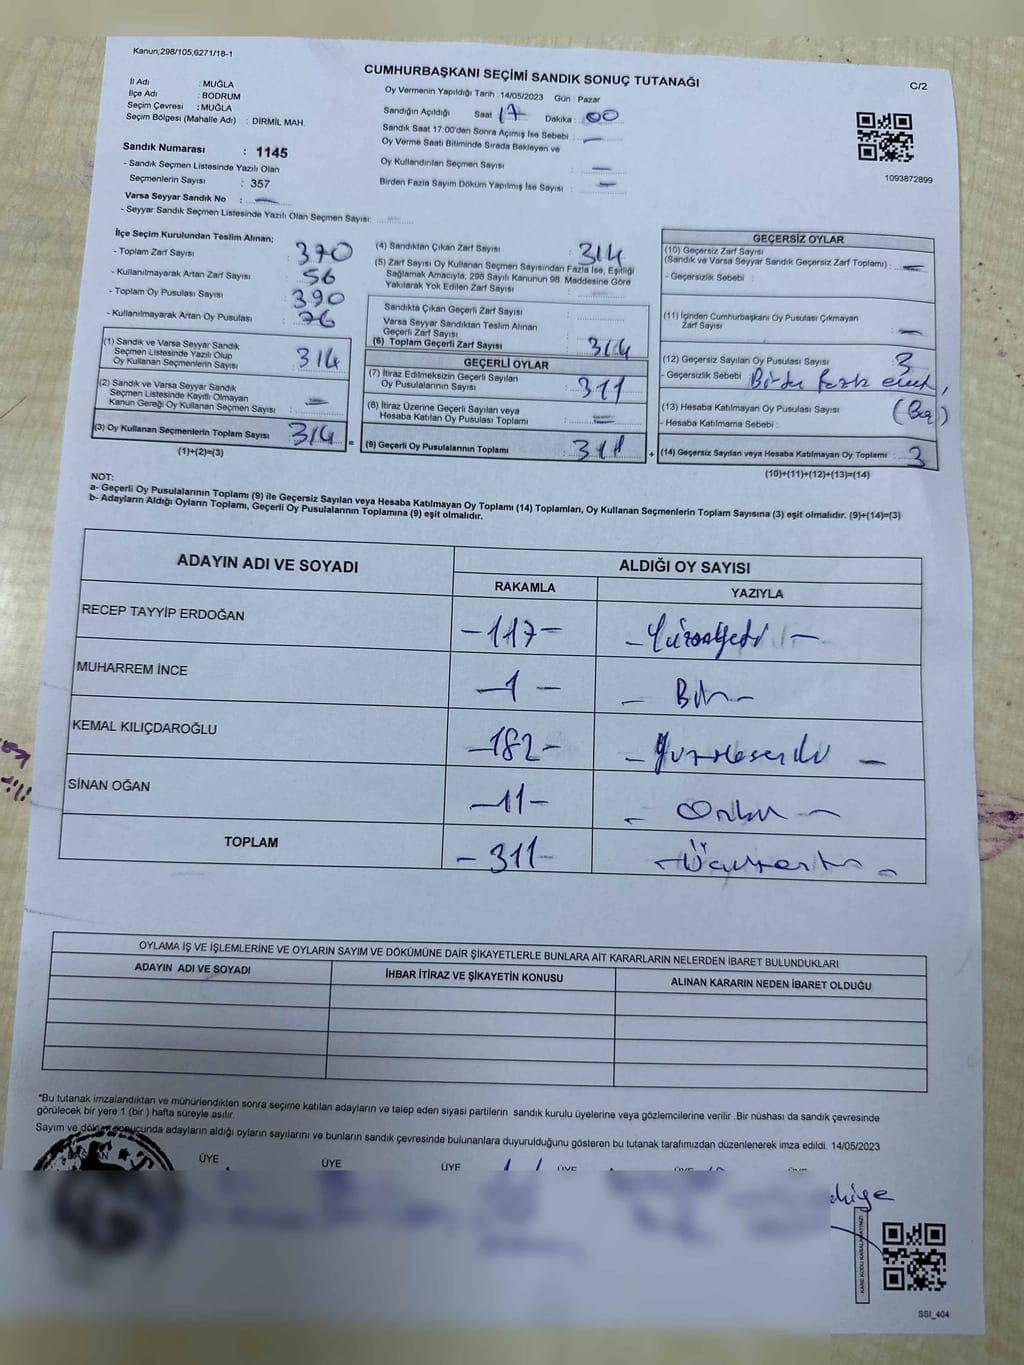 Kanun;298/105;6271/18-1
CUMHURBAŞKANI SEÇİMİ SANDIK SONUÇ TUTANAĞI
C/2
İl Adı : MUĞLA
İlçe Adı : BODRUM
Seçim Çevresi : MUĞLA
Seçim Bölgesi (Mahalle Adı) : DİRMİL MAH.
Oy Vermenin Yapıldığı Tarih : 14/05/2023 Gün : Pazar
Sandığın Açıldığı Saat 17 Dakika : 00
Sandık Saat 17:00'den Sonra Açımış İse Sebebi : —
Oy Verme Saati Bitiminde Sırada Bekleyen ve
Oy Kullandırılan Seçmen Sayısı : —
Birden Fazla Sayım Döküm Yapılmış İse Sayısı : —
1093872899
Sandık Numarası : 1145
- Sandık Seçmen Listesinde Yazılı Olan
Seçmenlerin Sayısı : 357
Varsa Seyyar Sandık No : —
- Seyyar Sandık Seçmen Listesinde Yazılı Olan Seçmen Sayısı: —
İlçe Seçim Kurulundan Teslim Alınan;
- Toplam Zarf Sayısı : 370
- Kullanılmayarak Artan Zarf Sayısı : 56
- Toplam Oy Pusulası Sayısı : 390
- Kullanılmayarak Artan Oy Pusulası : 76
(1) Sandık ve Varsa Seyyar Sandık
Seçmen Listesinde Yazılı Olup
Oy Kullanan Seçmenlerin Sayısı : 314
(2) Sandık ve Varsa Seyyar Sandık
Seçmen Listesinde Kayıtlı Olmayan
Kanun Gereği Oy Kullanan Seçmen Sayısı : —
(3) Oy Kullanan Seçmenlerin Toplam Sayısı : 314 =
(1)+(2)=(3)
(4) Sandıktan Çıkan Zarf Sayısı : 314
(5) Zarf Sayısı Oy Kullanan Seçmen Sayısından Fazla İse, Eşitliği
Sağlamak Amacıyla, 298 Sayılı Kanunun 98. Maddesine Göre
Yakılarak Yok Edilen Zarf Sayısı : —
Sandıkta Çıkan Geçerli Zarf Sayısı :
Varsa Seyyar Sandıktan Teslim Alınan
Geçerli Zarf Sayısı :
(6) Toplam Geçerli Zarf Sayısı : 314
GEÇERLİ OYLAR
(7) İtiraz Edilmeksizin Geçerli Sayılan
Oy Pusulalarının Sayısı : 311
(8) İtiraz Üzerine Geçerli Sayılan veya
Hesaba Katılan Oy Pusulası Toplamı : —
(9) Geçerli Oy Pusulalarının Toplamı : 311 +
GEÇERSİZ OYLAR
(10) Geçersiz Zarf Sayısı
(Sandık ve Varsa Seyyar Sandık Geçersiz Zarf Toplamı) : —
- Geçersizlik Sebebi :
(11) İçinden Cumhurbaşkanı Oy Pusulası Çıkmayan
Zarf Sayısı : —
(12) Geçersiz Sayılan Oy Pusulası Sayısı : 3
- Geçersizlik Sebebi
(13) Hesaba Katılmayan Oy Pusulası Sayısı :
- Hesaba Katılmama Sebebi :
(14) Geçersiz Sayılan veya Hesaba Katılmayan Oy Toplamı : 3
(10)+(11)+(12)+(13)=(14)
NOT:
a- Geçerli Oy Pusulalarının Toplamı (9) ile Geçersiz Sayılan veya Hesaba Katılmayan Oy Toplamı (14) Toplamları, Oy Kullanan Seçmenlerin Toplam Sayısına (3) eşit olmalıdır. (9)+(14)=(3)
b- Adayların Aldığı Oyların Toplamı, Geçerli Oy Pusulalarının Toplamına (9) eşit olmalıdır.
ADAYIN ADI VE SOYADI
ALDIĞI OY SAYISI
RAKAMLA YAZIYLA
RECEP TAYYİP ERDOĞAN -117- - Yüzonyedi -
MUHARREM İNCE -1- - Bir -
KEMAL KILIÇDAROĞLU -182-
SİNAN OĞAN -11- - Onbir -
TOPLAM -311-
OYLAMA İŞ VE İŞLEMLERİNE VE OYLARIN SAYIM VE DÖKÜMÜNE DAİR ŞİKAYETLERLE BUNLARA AİT KARARLARIN NELERDEN İBARET BULUNDUKLARI
ADAYIN ADI VE SOYADI İHBAR İTİRAZ VE ŞİKAYETİN KONUSU ALINAN KARARIN NEDEN İBARET OLDUĞU
*Bu tutanak imzalandıktan ve mühürlendikten sonra seçime katılan adayların ve talep eden siyasi partilerin sandık kurulu üyelerine veya gözlemcilerine verilir .Bir nüshası da sandık çevresinde
görülecek bir yere 1 (bir ) hafta süreyle asılır.
Sayım ve döküm sonucunda adayların aldığı oyların sayılarını ve bunların sandık çevresinde bulunanlara duyurulduğunu gösteren bu tutanak tarafımızdan düzenlenerek imza edildi. 14/05/2023
BAŞKAN ÜYE ÜYE ÜYE ÜYE ÜYE ÜYE
SSI_404